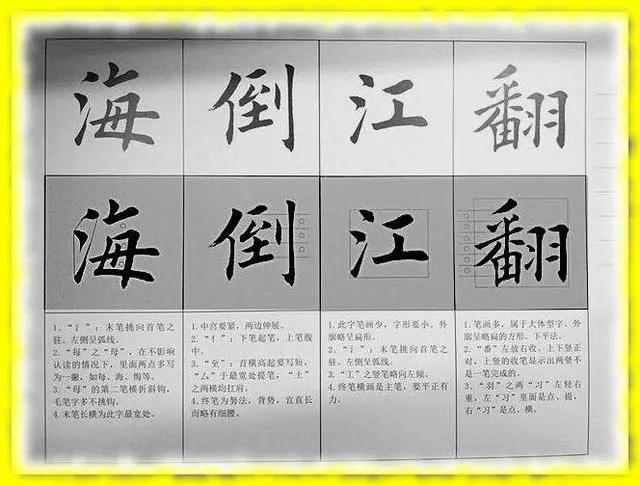 海 倒 江 翻
海 倒 江 翻
1. “氵”：末笔挑向首笔之
驻，左侧呈弧线。
2. “每”之“母”，在不影响
认读的情况下，里面两点多写
为一撇，如每、海、悔等。
3. “母”的第二笔横折斜钩，
毛笔字多不挑钩。
4. 末笔长横为此字最宽处。
1. 中宫要紧，两边伸展。
2. “亻”：下笔起笔，上笔腹
中。
3. “至”：首横高起要写短。
“厶”于最宽处提笔，“土”
之两横均扛肩。
4. 终笔为努法，背势，宜直长
而略有细腰。
1. 此字笔画少，字形要小。外
廓略呈扁形。
2. “氵”：末笔挑向首笔之
驻。左侧呈弧线。
3. “工”之竖笔略向左倾。
4. 终笔横画是主笔，要平正有
力。
1. 笔画多，属于大体型字。外
廓呈略扁的方形。下平法。
2. “番”左放右收。上下竖正
对。上竖的收笔显示出两竖不
是一笔完成的。
3. “羽”之两“习”左轻右
重，左“习”里面是点、提，
右“习”是点、横。